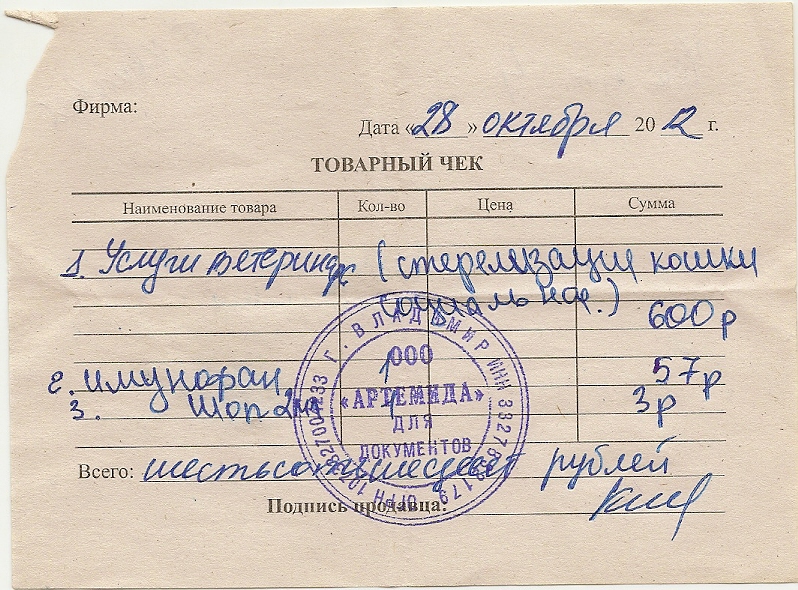 Фирма:
Дата «28» октября 2012 г.
ТОВАРНЫЙ ЧЕК
Наименование товара Кол-во Цена Сумма
1. Услуги ветеринар. (стерелизация кошки
социальная.) 600 р
2. имунофан 1 57р
3. Шпр 2мл 1 3р
Всего: шестьсотшесдесят рублей
Подпись продавца:
Г. ВЛАДИМИР ИНН
ОГРН
ООО
«АРТЕМИДА»
ДЛЯ
ДОКУМЕНТОВ